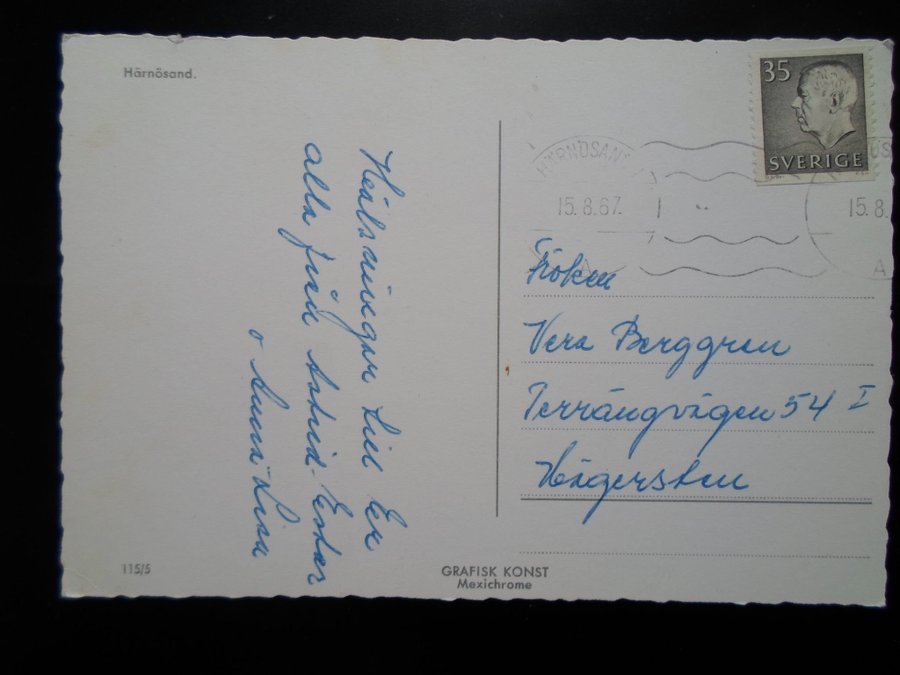 Härnösand.
35
SVERIGE
HÄRNÖSAND
15.8.67.
A
15.8.
A
Hälsningar till Er
alla från Astrid-Ester
o Anna-Lisa
Fröken
Vera Berggren
Terrängvägen 54 I
Hägersten
115/5
GRAFISK KONST
Mexichrome